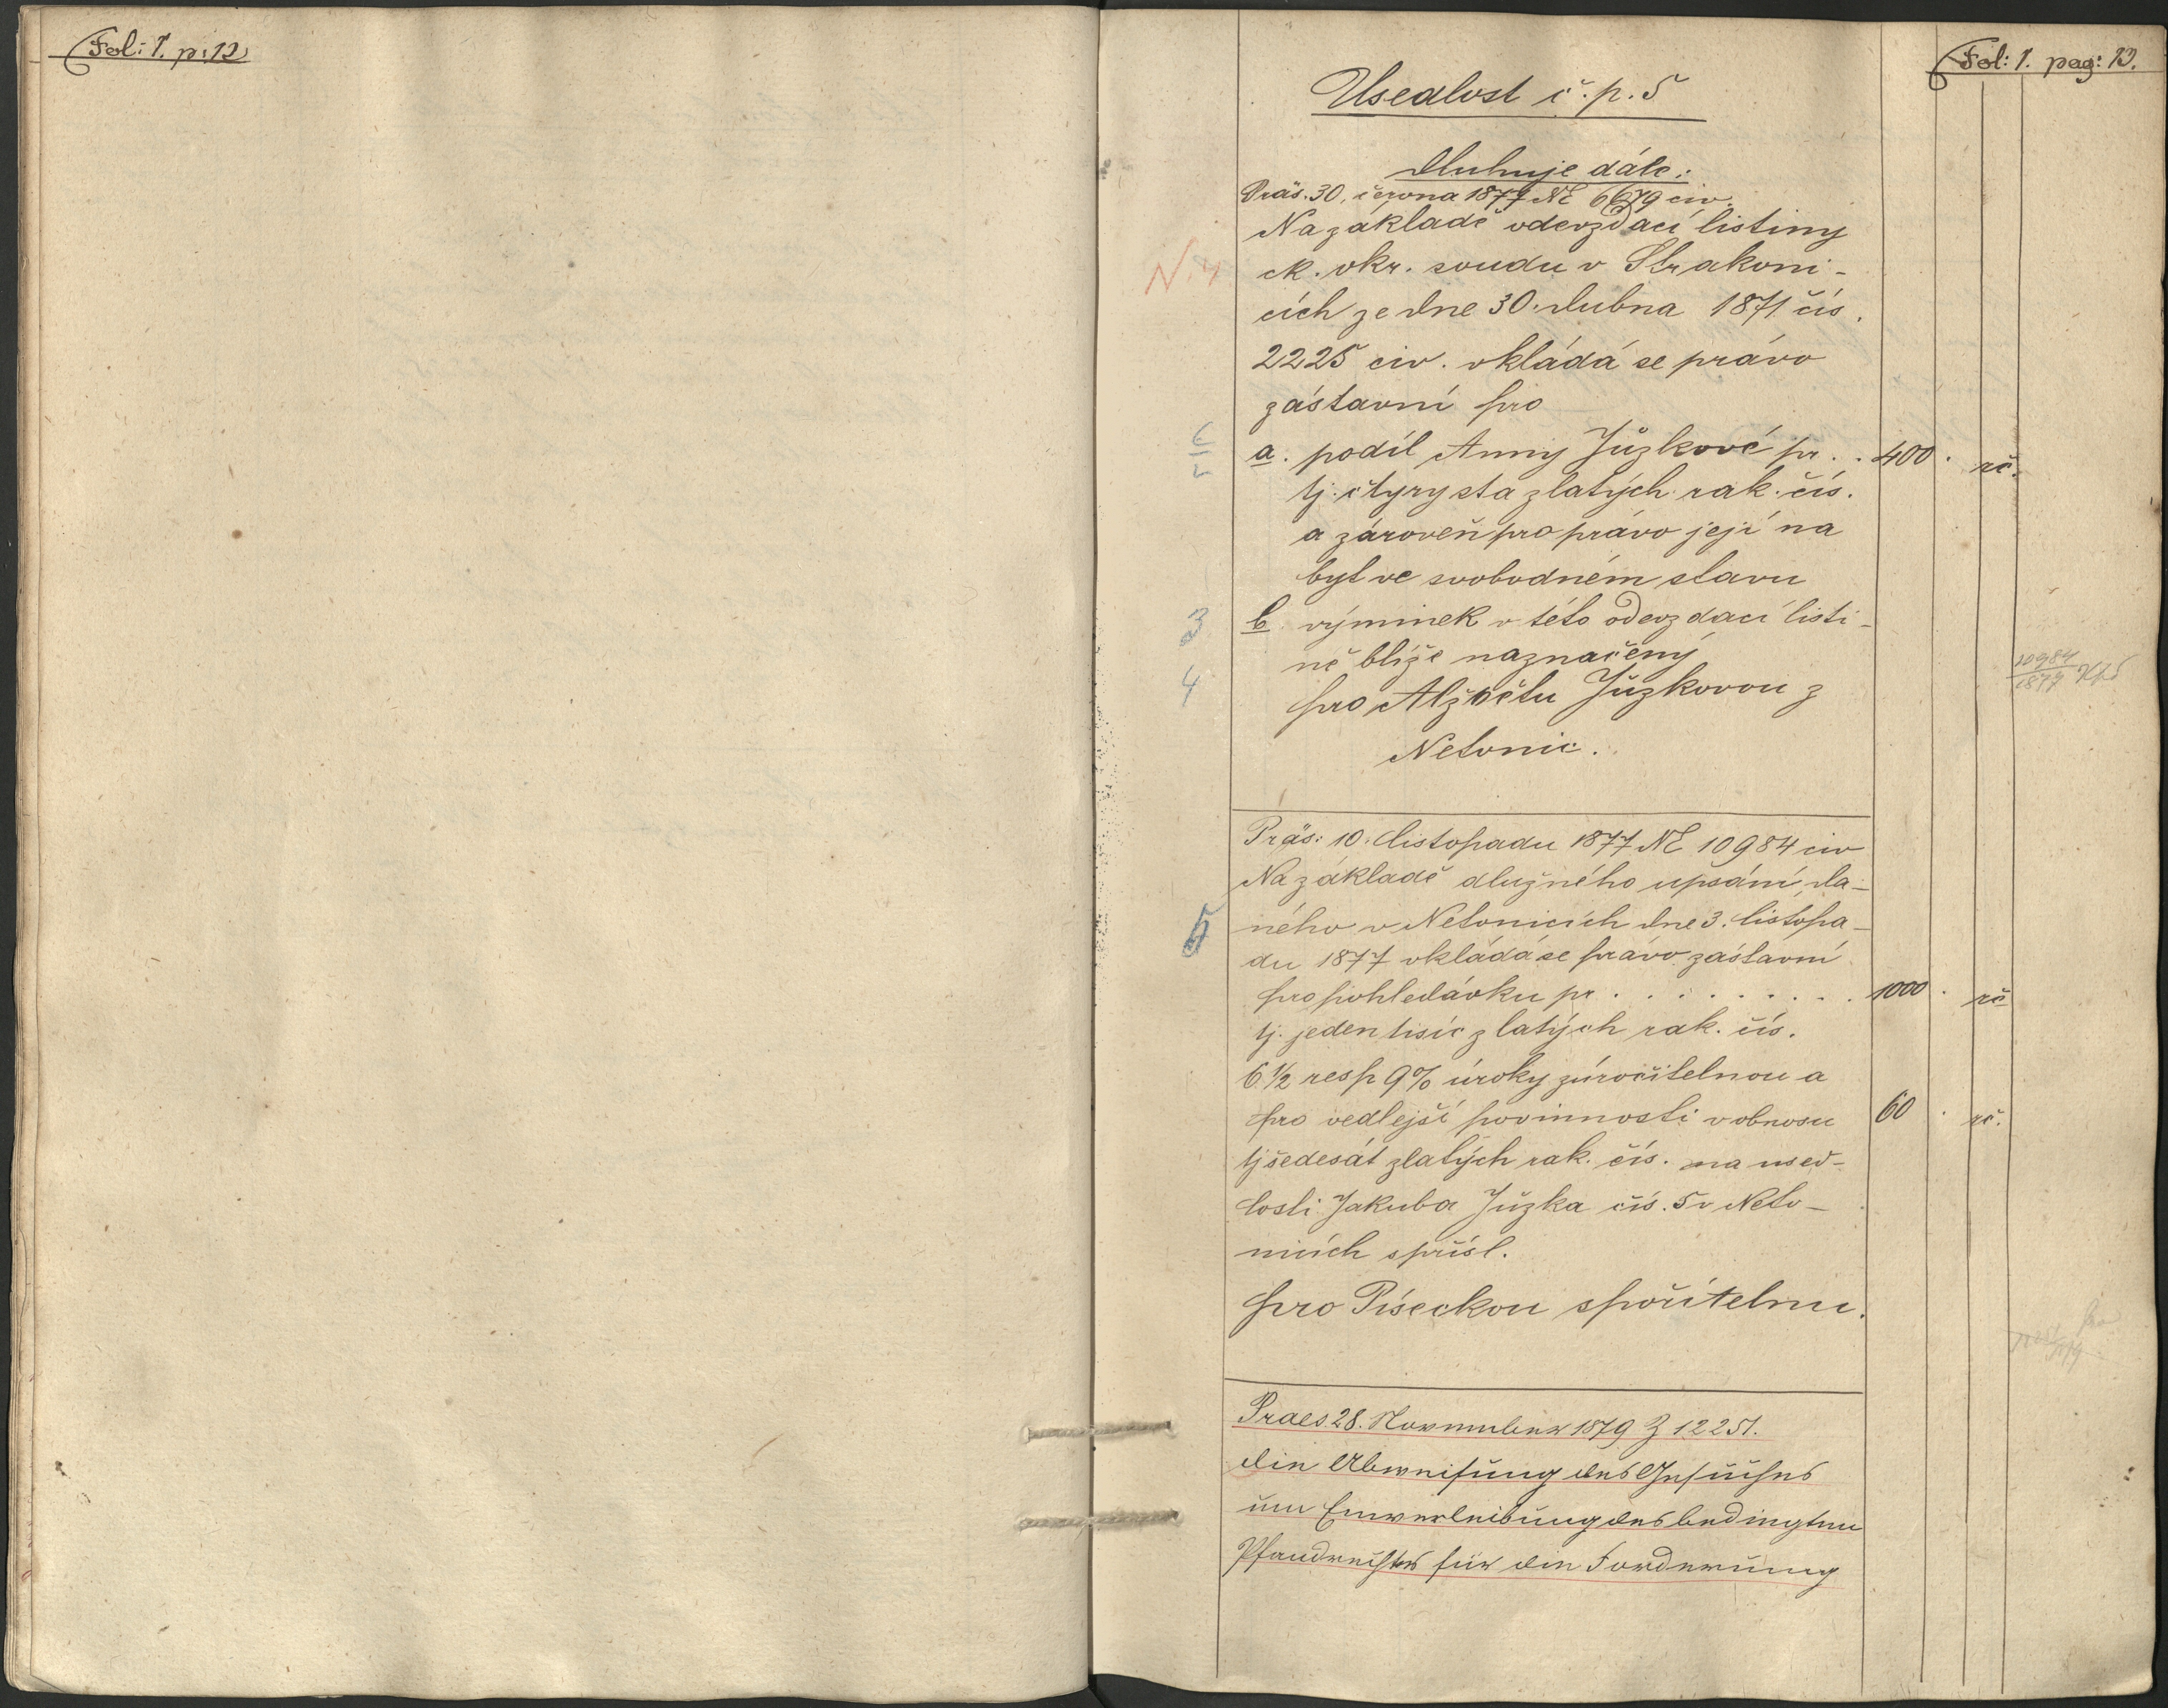 Fol: 1. p: 12
Fol: 1. pag: 13.
Usedlost č. p. 5
dluhuje dále:
Präs. 30. června 1877 NE 6679 civ.
Na základě odevzdací listiny
ck. okr. soudu v Strakoni-
cích ze dne 30. dubna 1871 čís.
2225 civ. vkládá se právo
zástavní pro
a. podíl Anny Jůzkové pr. . 400 . rč.
tj. čtyrysta zlatých rak. čís.
a zároveň pro právo její na
byt ve svobodném stavu
3 b. výminek v této odevzdací listi-
ně blíže naznačený
4 pro Alžbětu Jůzkovou z
Netonic.
10984
1877
Präs: 10. listopadu 1877 NE 10984 civ
Na základě dlužného upsání da-
5 ného v Netonicích dne 3. listopa-
du 1877 vkládá se právo zástavní
pro pohledávku pr . . . . . . . . 1000 . rč
tj. jeden tisíc zlatých rak. čís.
6 1/2 resp 9% úroky zúročitelnou a
pro vedlejší povinnosti v obnosu 60 . rč.
tj šedesát zlatých rak. čís. na used-
losti Jakuba Jůzka čís. 5 v Neto-
nicích s přísl.
pro Píseckou spořitelnu.
Praes. 28. November 1879 Z 12251.
die Abweisung des Gesuches
um Einverleibung des bedingten
Pfandrechtes für die Forderung